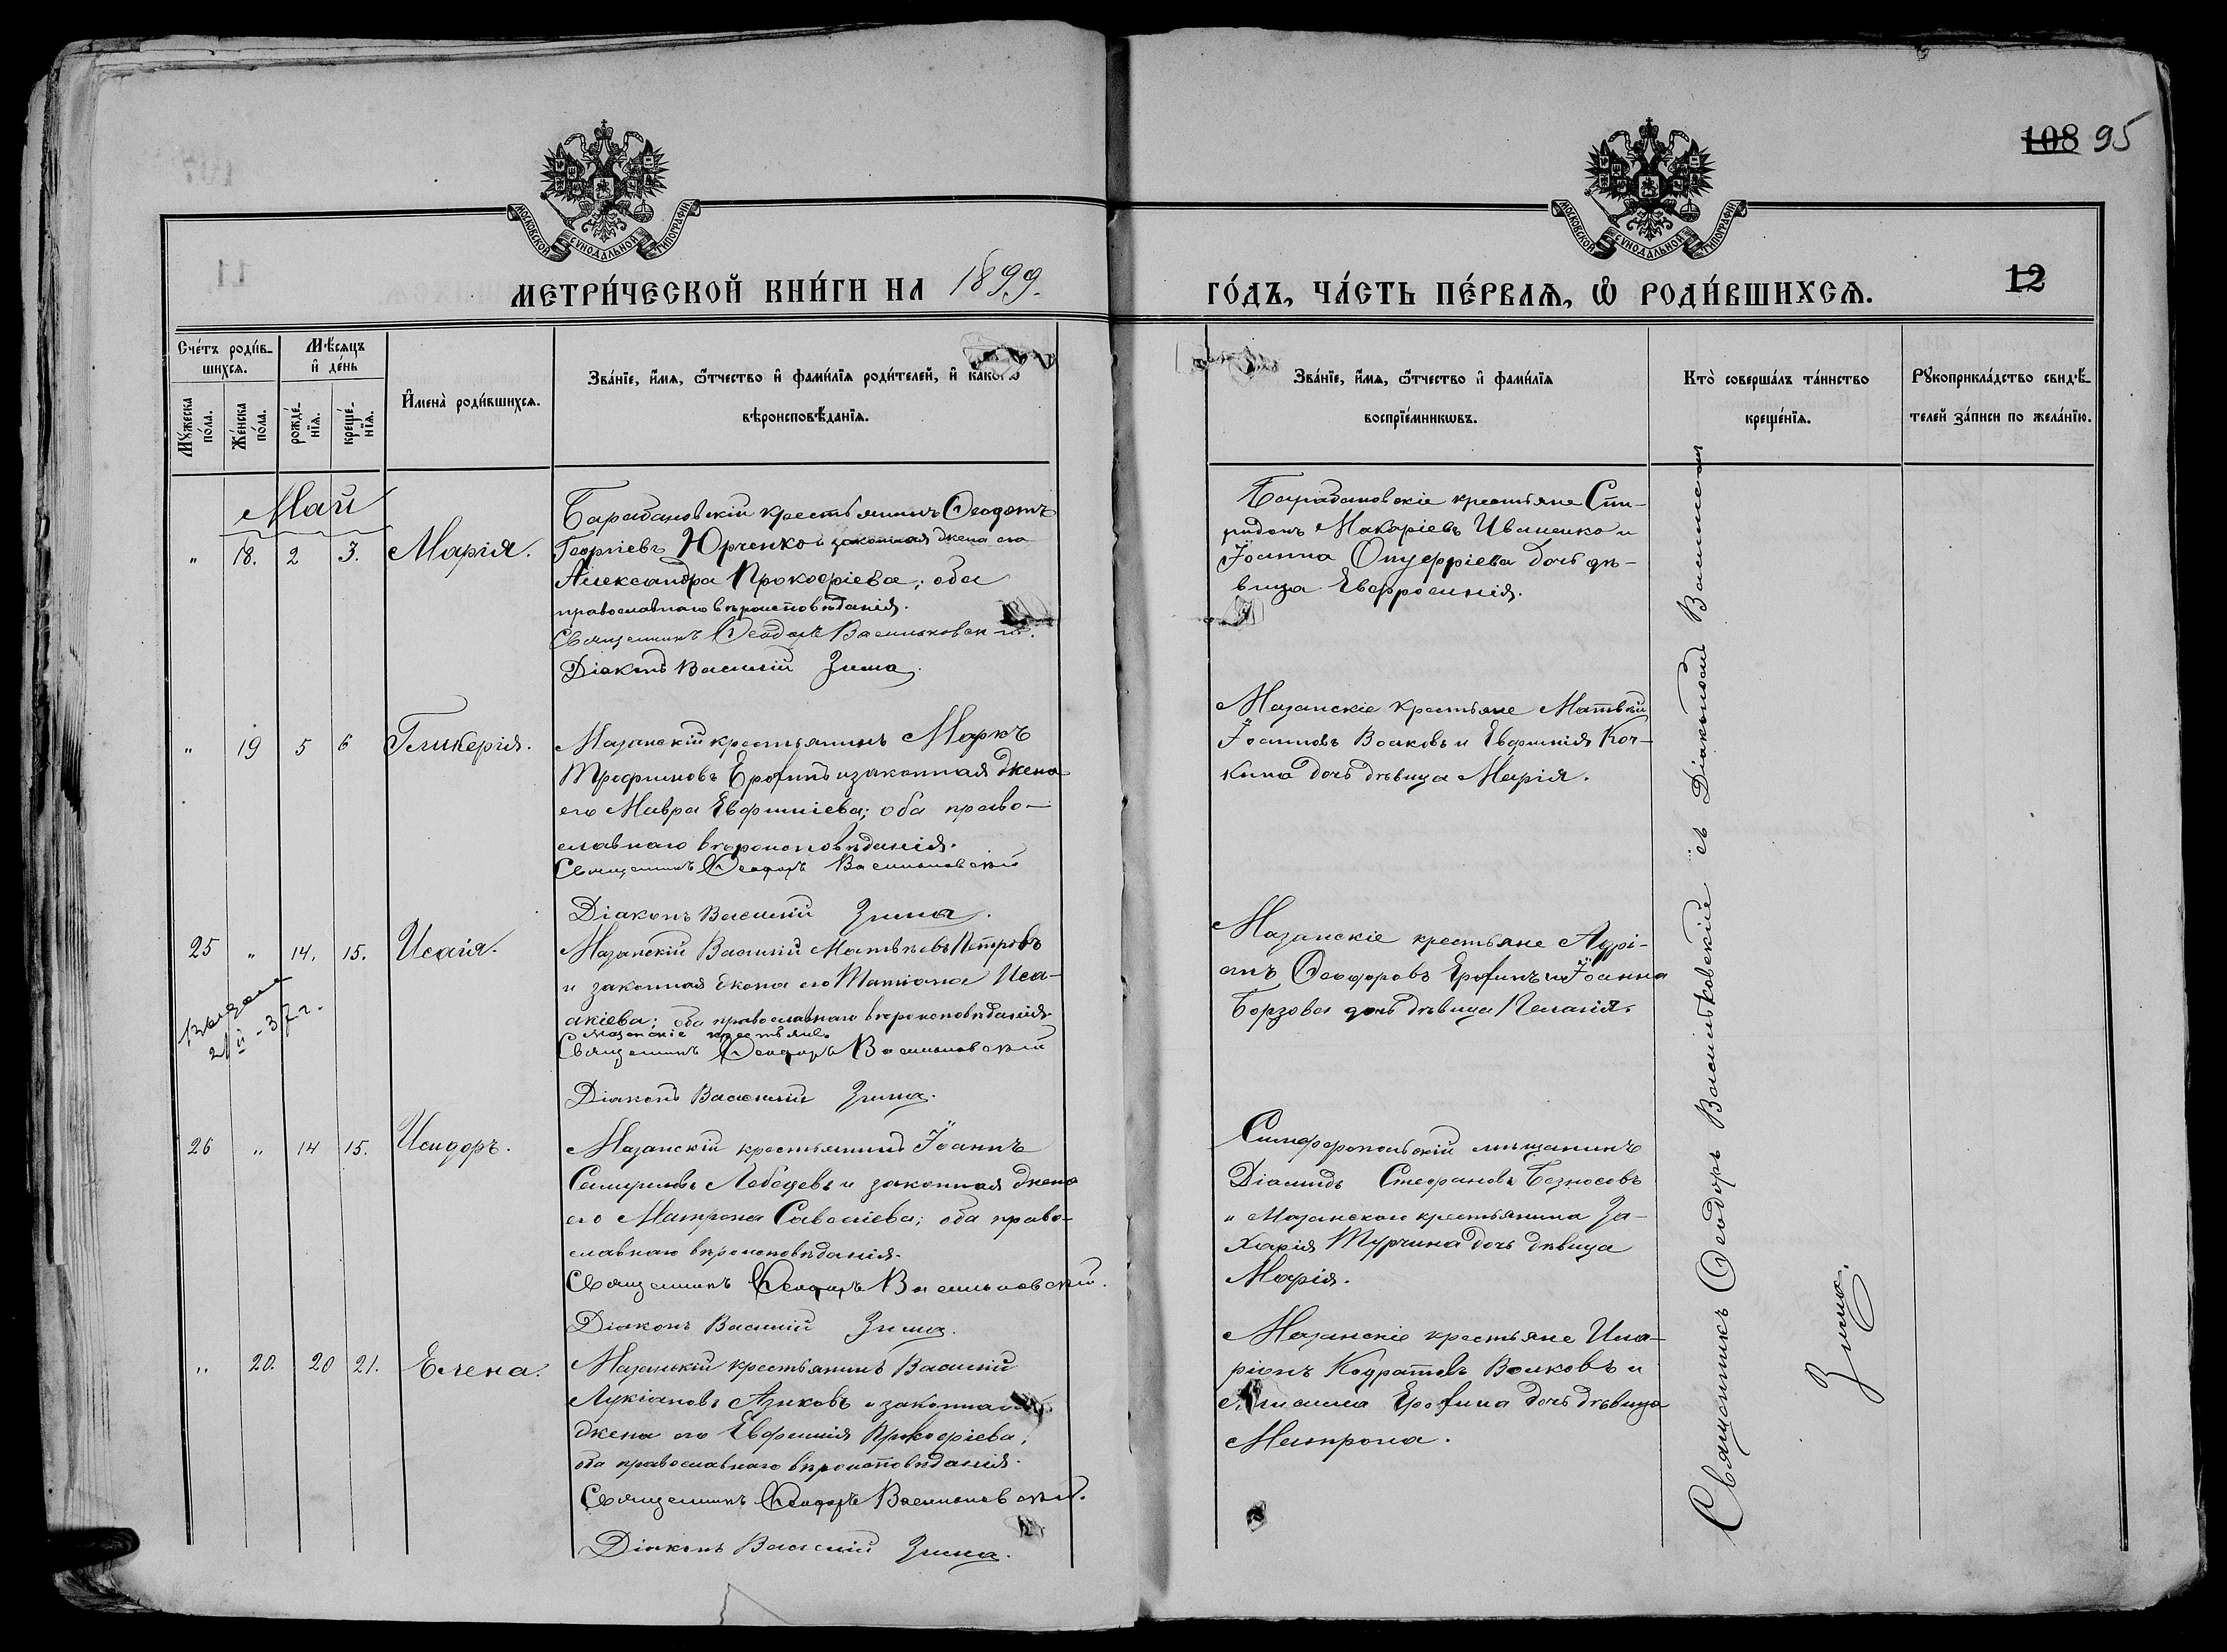 108 95
МОСКОВСКОЙ СѴНОДАЛЬНОЙ ТИПОГРАФІИ
МОСКОВСКОЙ СѴНОДАЛЬНОЙ ТИПОГРАФІИ
МЕТРИ́ЧЕСКОЙ КНИ́ГИ НА 1899.
ГО́ДЪ, ЧА́СТЬ ПЕ́РВАѦ, Ѡ҆ РОДИ́ВШИХСѦ.
12
Сче́тъ роди́в-
шихсѧ.
Мꙋ́жеска по́ла.
Же́нска по́ла.
Мѣ́сѧцъ
и҆ де́нь
рожде́-
нїѧ.
креще́-
нїѧ.
И҆мена̀ роди́вшихсѧ.
Зва́нїе, и҆́мѧ, ѻ҆́тчество и҆ фами́лїѧ роди́телей, и҆ како́го
вѣроисповѣ́данїѧ.
Зва́нїе, и҆́мѧ, ѻ҆́тчество и҆ фами́лїѧ
воспрїе́мникѡвъ.
Кто̀ соверша́лъ та́инство
креще́нїѧ.
Рꙋкоприкла́дство свидѣ́-
телей за́писи по жела́нїю.
Май
" 18. 2 3. Марія.
Барабановскій крестьянинъ Ѳеодотъ
Георгіевъ Юрченко и законная жена его
Александра Прокофіева; оба
православнаго вѣроисповѣданія.
Священникъ Ѳеодоръ Васильковскій.
Діаконъ Василій Зима.
Барабановскіе крестьяне Спи-
ридонъ Макаріевъ Иваненко и
Іоанна Онуфріева дочь дѣ-
вица Евфросинія.
" 19 5 6 Гликерія.
Мазанскій крестьянинъ Маркъ
Трофимовъ Ерофинъ и законная жена
его Мавра Евфиміева; оба право-
славнаго вѣроисповѣданія.
Священникъ Ѳеодоръ Васильковскій
Діаконъ Василій Зима.
Мазанскіе крестьяне Матвѣй
Іоанновъ Волковъ и Евфимія Коч-
кина дочь дѣвица Марія.
25 " 14. 15. Исаія.
21 -37 г.
Мазанскій Василій Матвѣевъ Петровъ
и законная жена его Татіана Иса-
акіева; оба православнаго вѣроисповѣданія
мазанскіе крестьяне
Священникъ Ѳеодоръ Васильковскій
Діаконъ Василій Зима.
Мазанскіе крестьяне Адрі-
анъ Ѳеодоровъ Ерофинъ и Іоанна
Борзова дочь дѣвица Пелагія.
26 " 14 15. Исидоръ.
Мазанскій крестьянинъ Іоаннъ
Лебедевъ и законная жена
его Матрона Савеліева; оба право-
славнаго вѣроисповѣданія.
Священникъ Ѳеодоръ Васильковскій.
Діаконъ Василій Зима.
Симферопольскій мѣщанинъ
Діамидъ Стефановъ Безносовъ
и Мазанскаго крестьянина За-
харія Турчина дочь дѣвица
Марія.
" 20. 20 21. Елена.
Мазанскій крестьянинъ Василій
Лукіановъ Азиковъ и законная
жена его Евфимія Прокофіева;
оба православнаго вѣроисповѣданія.
Священникъ Ѳеодоръ Васильковскій.
Діаконъ Василій Зима.
Мазанскіе крестьяне Ила-
ріонъ Кодратовъ Волковъ и
Ерофина дочь дѣвица
Матрона.
Священникъ Ѳеодоръ Васильковскій съ Діакономъ Василіемъ
Зима.